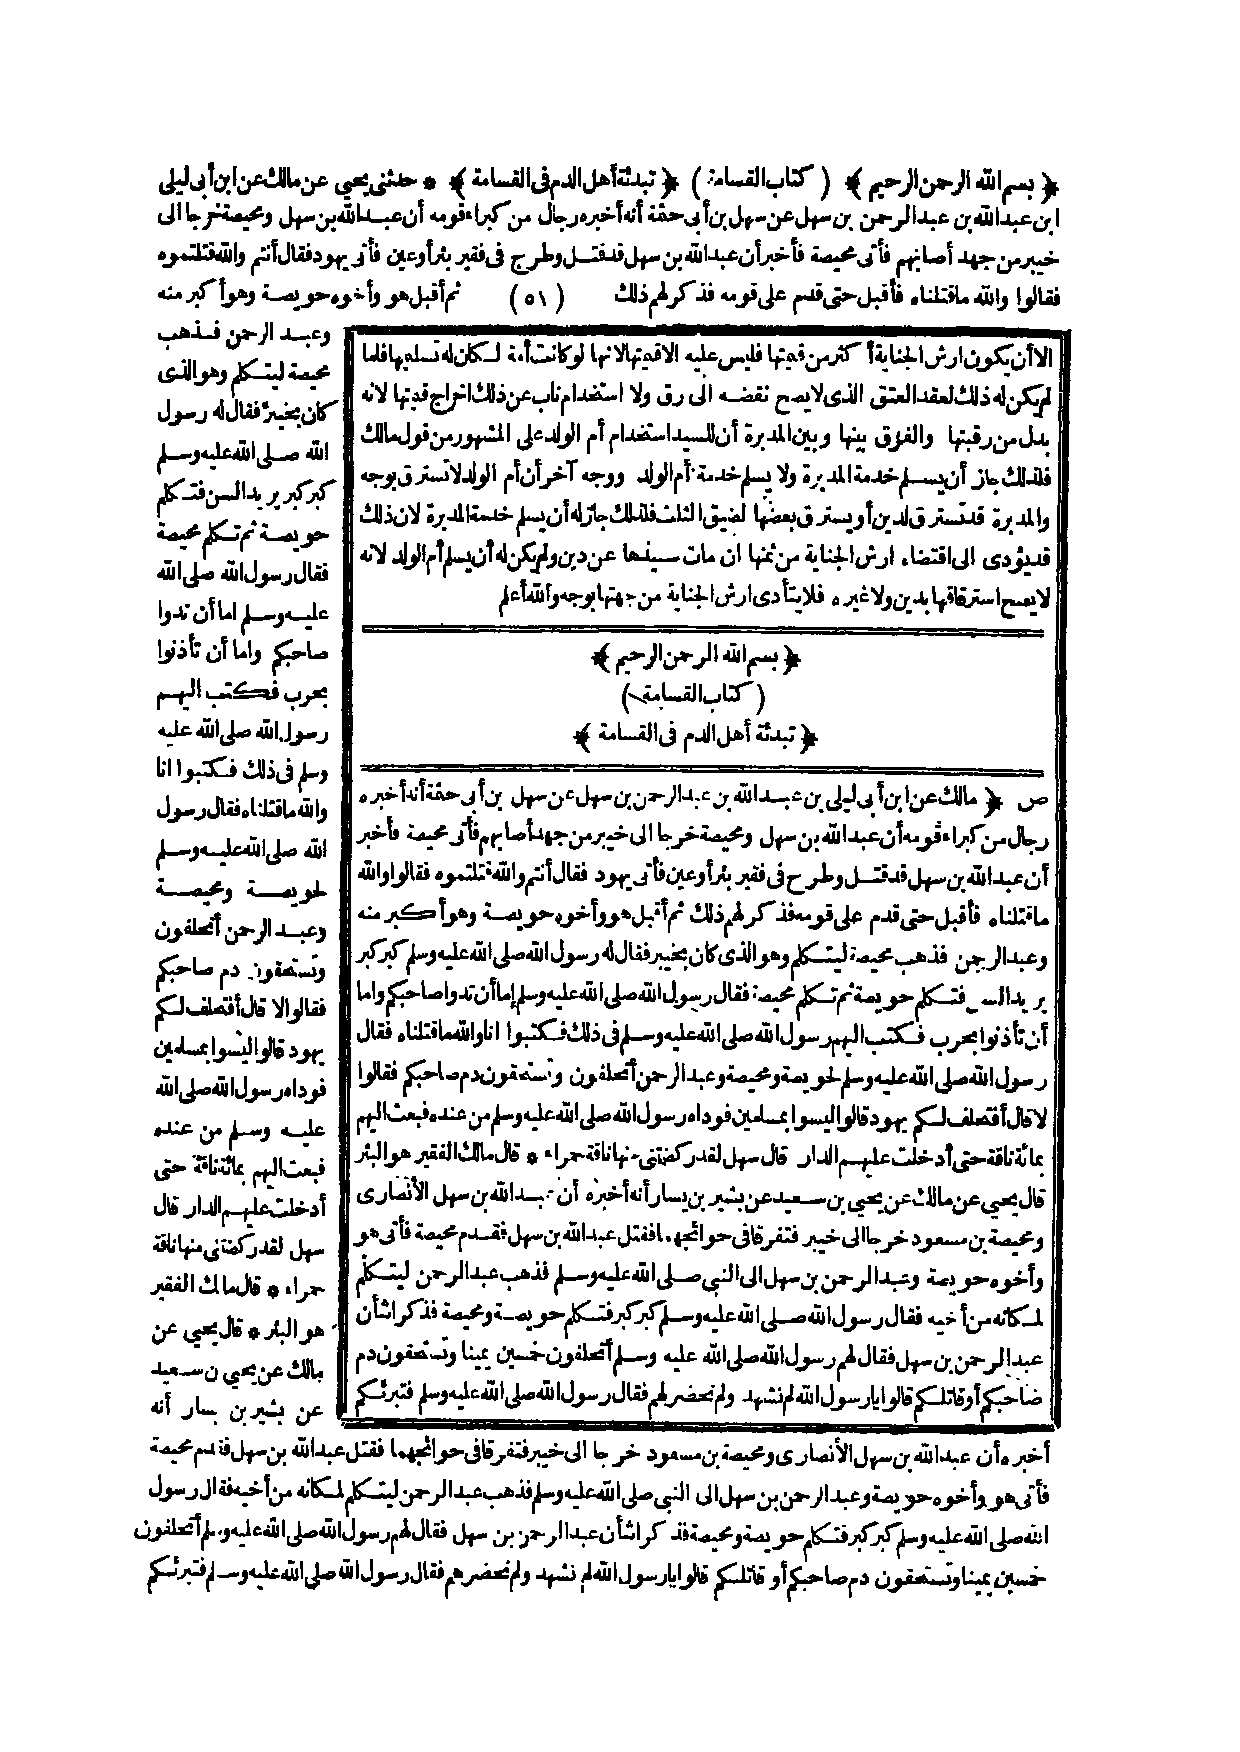 ﴿ بسم الله الرحمن الرحيم ﴾ ( كتاب القسامة ) ﴿ تبدئة أهل الدم فى القسامة ﴾ * حدثنى يحيى عن مالك عن ابن أبى ليلى
ابن عبد الله بن عبد الرحمن بن سهل عن سهل بن أبى حثمة أنه أخبره رجال من كبراء قومه أن عبد الله بن سهل ومحيصة خرجا الى
خيبر من جهد أصابهم فأتى محيصة فأخبر أن عبد الله بن سهل قد قتل وطرح فى فقير بئر أو عين فأتى يهود فقال أنتم والله قتلتموه
فقالوا والله ما قتلناه فأقبل حتى قدم على قومه فذكر لهم ذلك ( ٥١ ) ثم أقبل هو وأخوه حويصة وهو أكبر منه
وعبد الرحمن فذهب
محيصة ليتكلم وهو الذى
كان بخيبر فقال له رسول
الله صلى الله عليه وسلم
كبر كبر يريد السن فتكلم
حويصة ثم تكلم محيصة
فقال رسول الله صلى الله
عليه وسلم اما أن تدوا
صاحبكم واما أن تأذنوا
بحرب فكتب اليهم
رسول الله صلى الله عليه
وسلم فى ذلك فكتبوا انا
والله ما قتلناه فقال رسول
الله صلى الله عليه وسلم
لحويصة ومحيصة
وعبد الرحمن أتحلفون
وتستحقون دم صاحبكم
فقالوا لا قال أفتحلف لكم
يهود قالوا ليسوا بمسلمين
فوداه رسول الله صلى الله
عليه وسلم من عنده
فبعث اليهم بمائة ناقة حتى
أدخلت عليهم الدار قال
سهل لقد ركضتنى منها ناقة
حمراء * قال مالك الفقير
هو البئر * قال يحيى عن
مالك عن يحيى بن سعيد
عن بشير بن يسار أنه
الا أن يكون ارش الجناية أكثر من قيمتها فليس عليه الا قيمتها لانها لو كانت أمة لكان له تسليمها فلما
لم يكن له ذلك لعقد العتق الذى لا يصح نقضه الى رق ولا استخدام ناب عن ذلك اخراج قيمتها لانه
بدل من رقبتها والفرق بينها وبين المدبرة أن للسيد استخدام أم الولد على المشهور من قول مالك
فلذلك جاز أن يسلم خدمة المدبرة ولا يسلم خدمة أم الولد ووجه آخر أن أم الولد لا تسترق بوجه
والمدبرة قد تسترق لدين أو يسترق بعضها لضيق الثلث فلذلك جاز له أن يسلم خدمة المدبرة لان ذلك
قد يؤدى الى اقتضاء ارش الجناية من ثمنها ان مات سيدها عن دين ولم يكن له أن يسلم أم الولد لانه
لا يصح استرقاقها بدين ولا غيره فلا يتأدى ارش الجناية من جهتها بوجه والله أعلم
﴿ بسم الله الرحمن الرحيم ﴾
( كتاب القسامة )
﴿ تبدئة أهل الدم فى القسامة ﴾
ص ﴿ مالك عن ابن أبى ليلى بن عبد الله بن عبد الرحمن بن سهل عن سهل بن أبى حثمة أنه أخبره
رجال من كبراء قومه أن عبد الله بن سهل ومحيصة خرجا الى خيبر من جهد أصابهم فأتى محيصة فأخبر
أن عبد الله بن سهل قد قتل وطرح فى فقير بئر أو عين فأتى يهود فقال أنتم والله قتلتموه فقالوا والله
ما قتلناه فأقبل حتى قدم على قومه فذكر لهم ذلك ثم أقبل هو وأخوه حويصة وهو أكبر منه
وعبد الرحمن فذهب محيصة ليتكلم وهو الذى كان بخيبر فقال له رسول الله صلى الله عليه وسلم كبر كبر
يريد السن فتكلم حويصة ثم تكلم محيصة فقال رسول الله صلى الله عليه وسلم إما أن تدوا صاحبكم واما
أن تأذنوا بحرب فكتب اليهم رسول الله صلى الله عليه وسلم فى ذلك فكتبوا انا والله ما قتلناه فقال
رسول الله صلى الله عليه وسلم لحويصة ومحيصة وعبد الرحمن أتحلفون وتستحقون دم صاحبكم فقالوا
لا قال أفتحلف لكم يهود قالوا ليسوا بمسلمين فوداه رسول الله صلى الله عليه وسلم من عنده فبعث اليهم
بمائة ناقة حتى أدخلت عليهم الدار قال سهل لقد ركضتنى منها ناقة حمراء * قال مالك الفقير هو البئر
قال يحيى عن مالك عن يحيى بن سعيد عن بشير بن يسار أنه أخبره أن عبد الله بن سهل الأنصارى
ومحيصة بن مسعود خرجا الى خيبر فتفرقا فى حوائجهما فقتل عبد الله بن سهل فقدم محيصة فأتى هو
وأخوه حويصة وعبد الرحمن بن سهل الى النبي صلى الله عليه وسلم فذهب عبد الرحمن ليتكلم
لمكانه من أخيه فقال رسول الله صلى الله عليه وسلم كبر كبر فتكلم حويصة ومحيصة فذكرا شأن
عبد الرحمن بن سهل فقال لهم رسول الله صلى الله عليه وسلم أتحلفون خمسين يمينا وتستحقون دم
صاحبكم أو قاتلكم قالوا يا رسول الله لم نشهد ولم نحضر لهم فقال رسول الله صلى الله عليه وسلم فتبرئكم
أخبره أن عبد الله بن سهل الأنصارى ومحيصة بن مسعود خرجا الى خيبر فتفرقا فى حوائجهما فقتل عبد الله بن سهل فقدم محيصة
فأتى هو وأخوه حويصة وعبد الرحمن بن سهل الى النبي صلى الله عليه وسلم فذهب عبد الرحمن ليتكلم لمكانه من أخيه فقال رسول
الله صلى الله عليه وسلم كبر كبر فتكلم حويصة ومحيصة فذكرا شأن عبد الرحمن بن سهل فقال لهم رسول الله صلى الله عليه وسلم أتحلفون
خمسين يمينا وتستحقون دم صاحبكم أو قاتلكم قالوا يا رسول الله لم نشهد ولم نحضر هم فقال رسول الله صلى الله عليه وسلم فتبرئكم